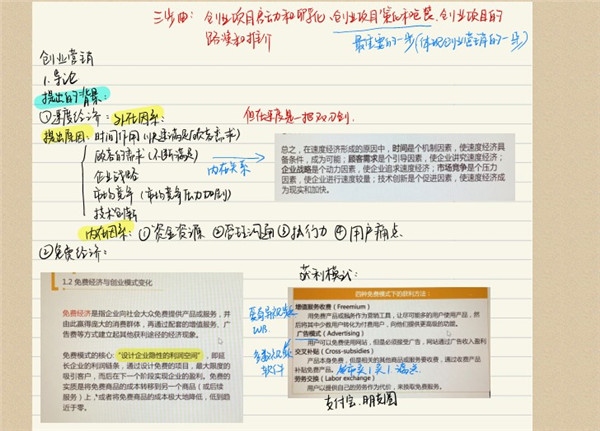 三步曲：创业项目启动和孵化、创业项目策划和包装、创业项目的
路演和推介
最重要的一步(体现创业营销的一步)
创业营销
1.导论
提出的背景：
①速度经济：外在因素：
但在速度是一把双刃剑.
提出原因：时间作用(快速满足顾客需求)
顾客的需求(不断满足)
内在关系
企业战略
市场竞争(市场竞争压力加剧)
技术创新
总之，在速度经济形成的原因中，时间是个机制因素，使速度经济具
备条件，成为可能；顾客需求是个引导因素，使企业讲究速度经济；
企业战略是个动力因素，使企业追求速度经济；市场竞争是个压力
因素，使企业进行速度较量；技术创新是个促进因素，使速度经济成
为现实和加快。
内在因素：①资金资源 ②管理沟通 ③执行力 ④用户痛点.
②免费经济：
1.2 免费经济与创业模式变化
免费经济是指企业向社会大众免费提供产品或服务，并
由此赢得庞大的消费群体，再通过配套的增值服务、广
告费等方式建立起其他获利途径的经济现象。
免费模式的核心：“设计企业隐性的利润空间”，即延
长企业的利润链条，通过设计免费的项目，最大限度的
吸引客户，而后在下一个阶段实现企业的盈利。免费的
实质是将免费商品的成本转移到另一个商品（或后续
服务）上，或者将免费商品的成本极大地降低，低到趋
近于零。
获利模式：
四种免费模式下的获利方法：
增值服务收费（Freemium）
用免费产品或服务作为营销工具，让尽可能多的用户使用产品，然
后将其中少数用户转化为付费用户，向他们提供更高级的功能。
广告模式（Advertising）
用户可以免费使用网站，但是必须接受广告，网站通过广告收入盈利
交叉补贴（Cross-subsidies）
产品本身免费，但是相关的其他商品或服务要收费，通过收费产品
补贴免费产品。
劳务交换（Labor exchange）
用户以提供自己的劳务作为代价，来换取免费服务。
软件
支付宝.朋友圈